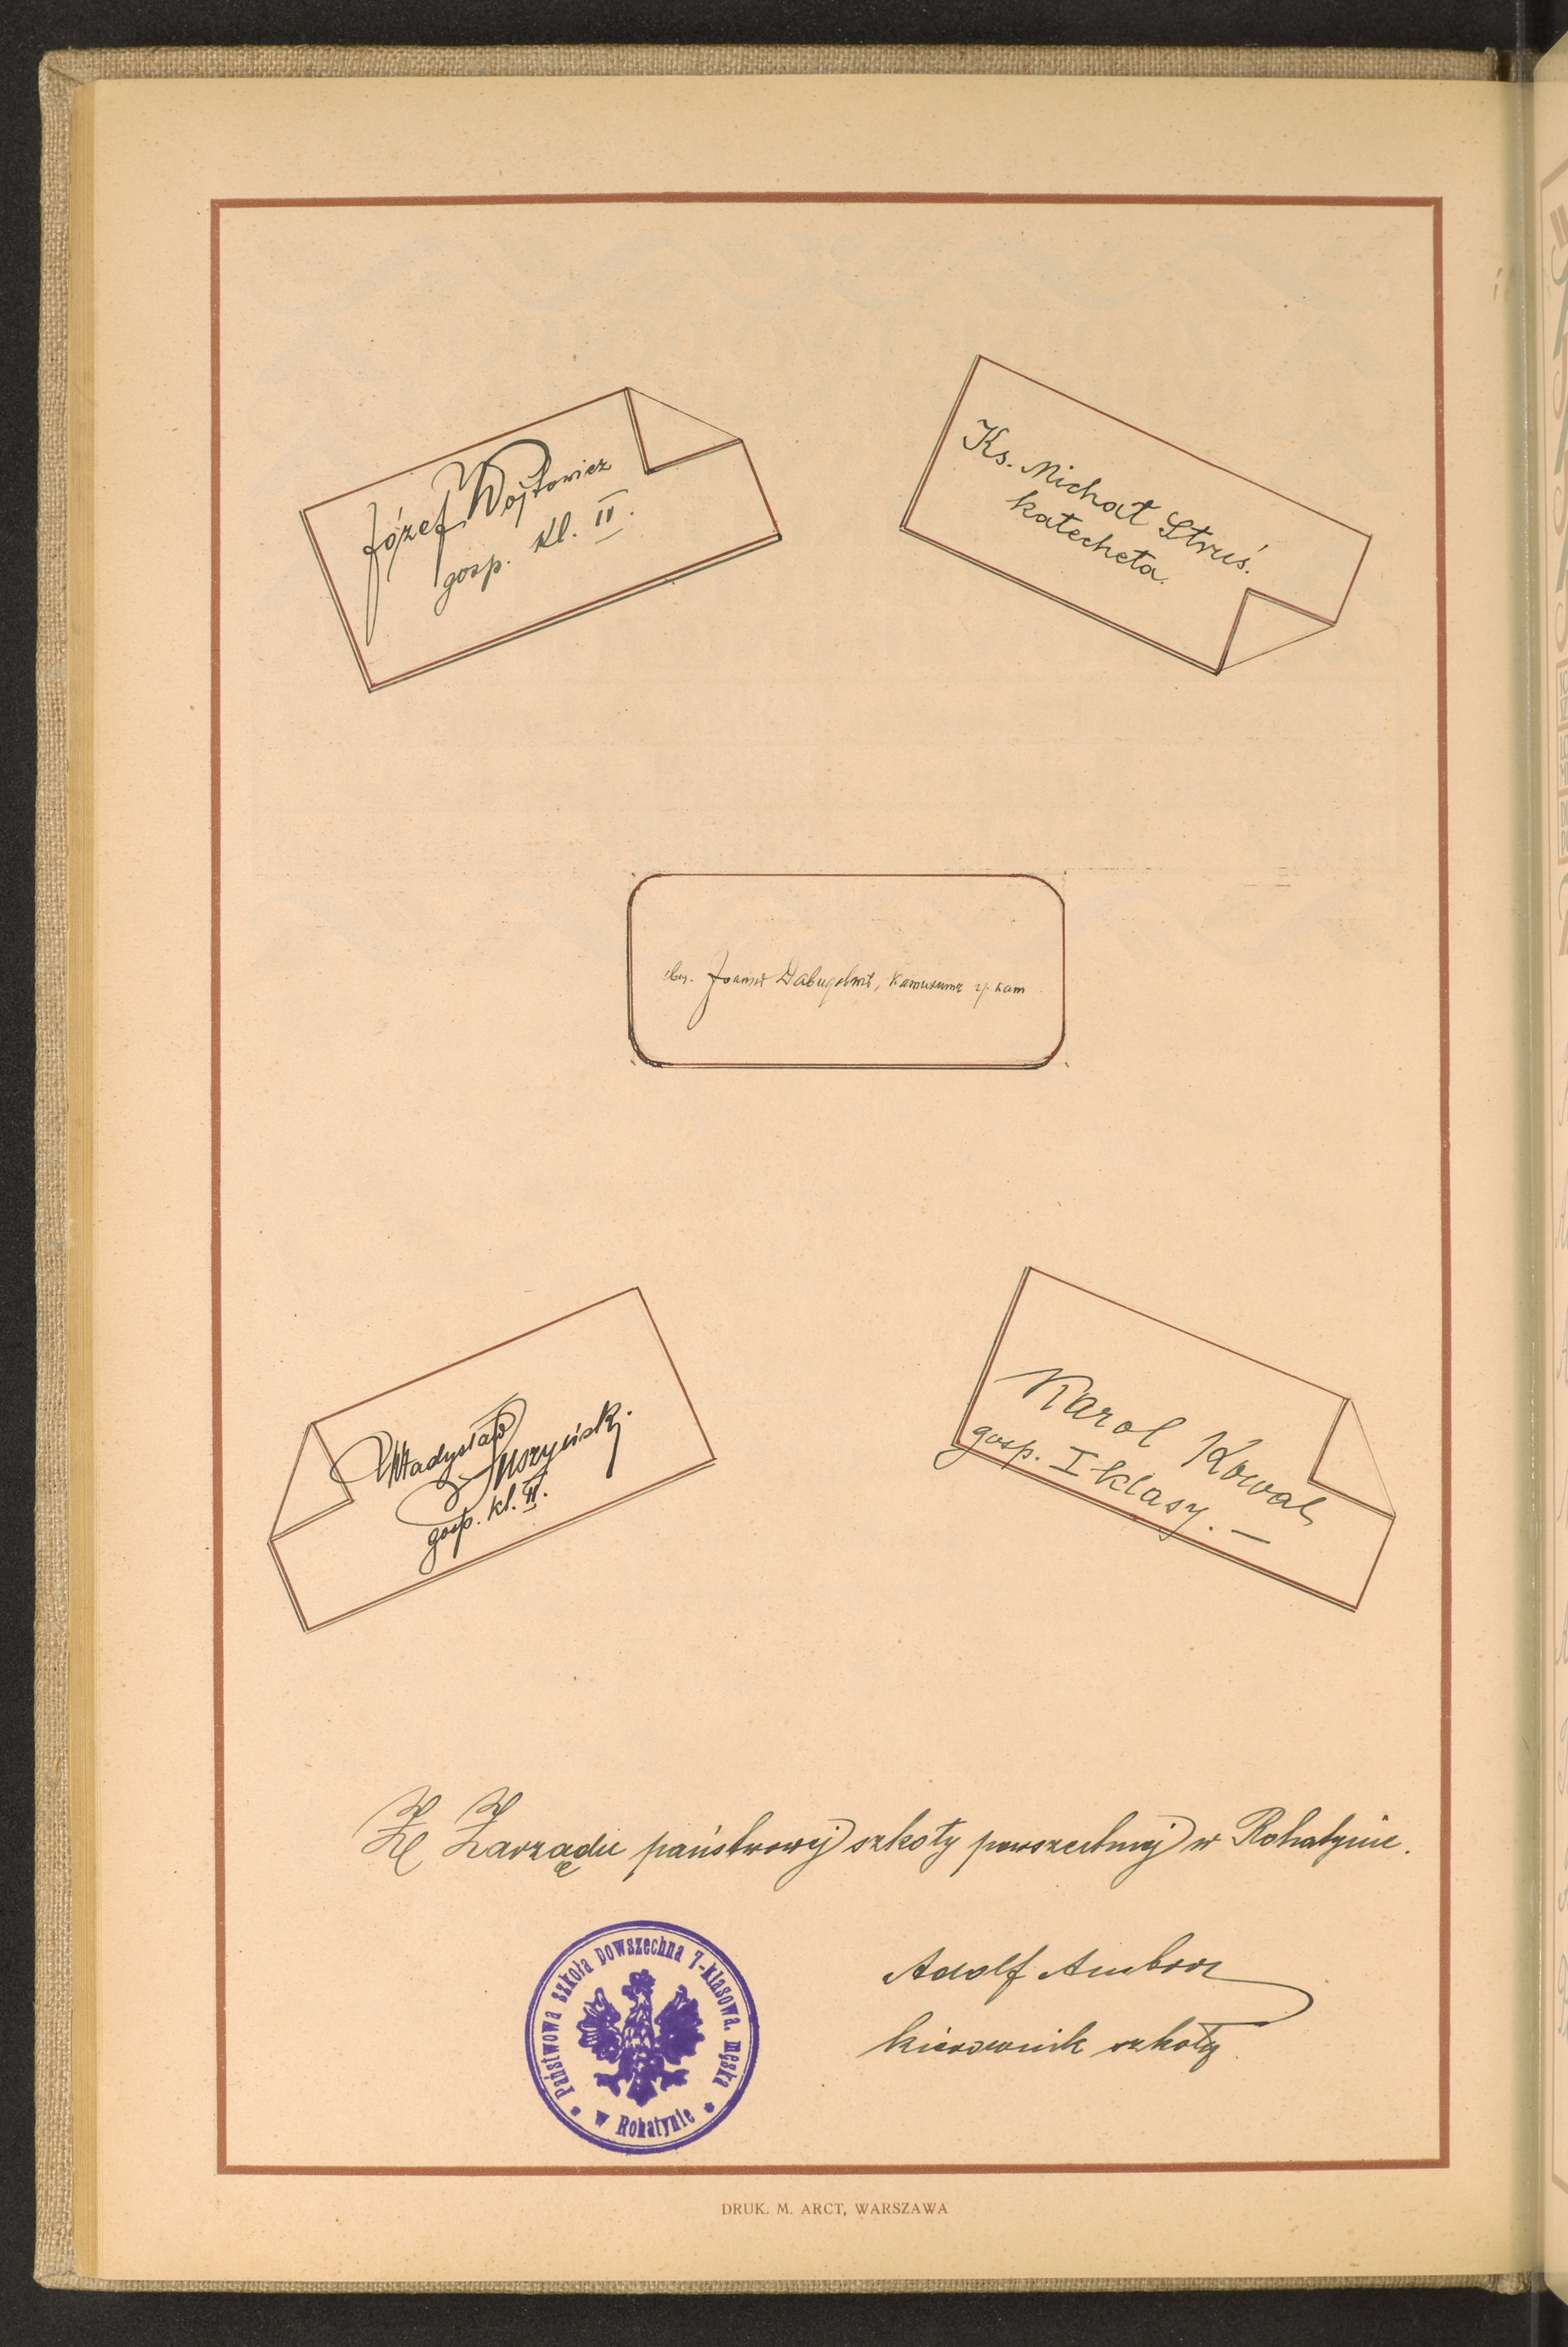 Józef Wojtowicz
gosp. kl. II.
Ks. Michał Struś.
katecheta.
Władysław
gosp. kl. II.
Karol Kowal
gosp. I klasy. —
Z Zarządu państwowej szkoły powszechnej w Rohatynie.
Państwowa szkoła Powszechna 7-klasowa. męska
w Rohatynie
Adolf
kierownik szkoły
DRUK. M. ARCT, WARSZAWA